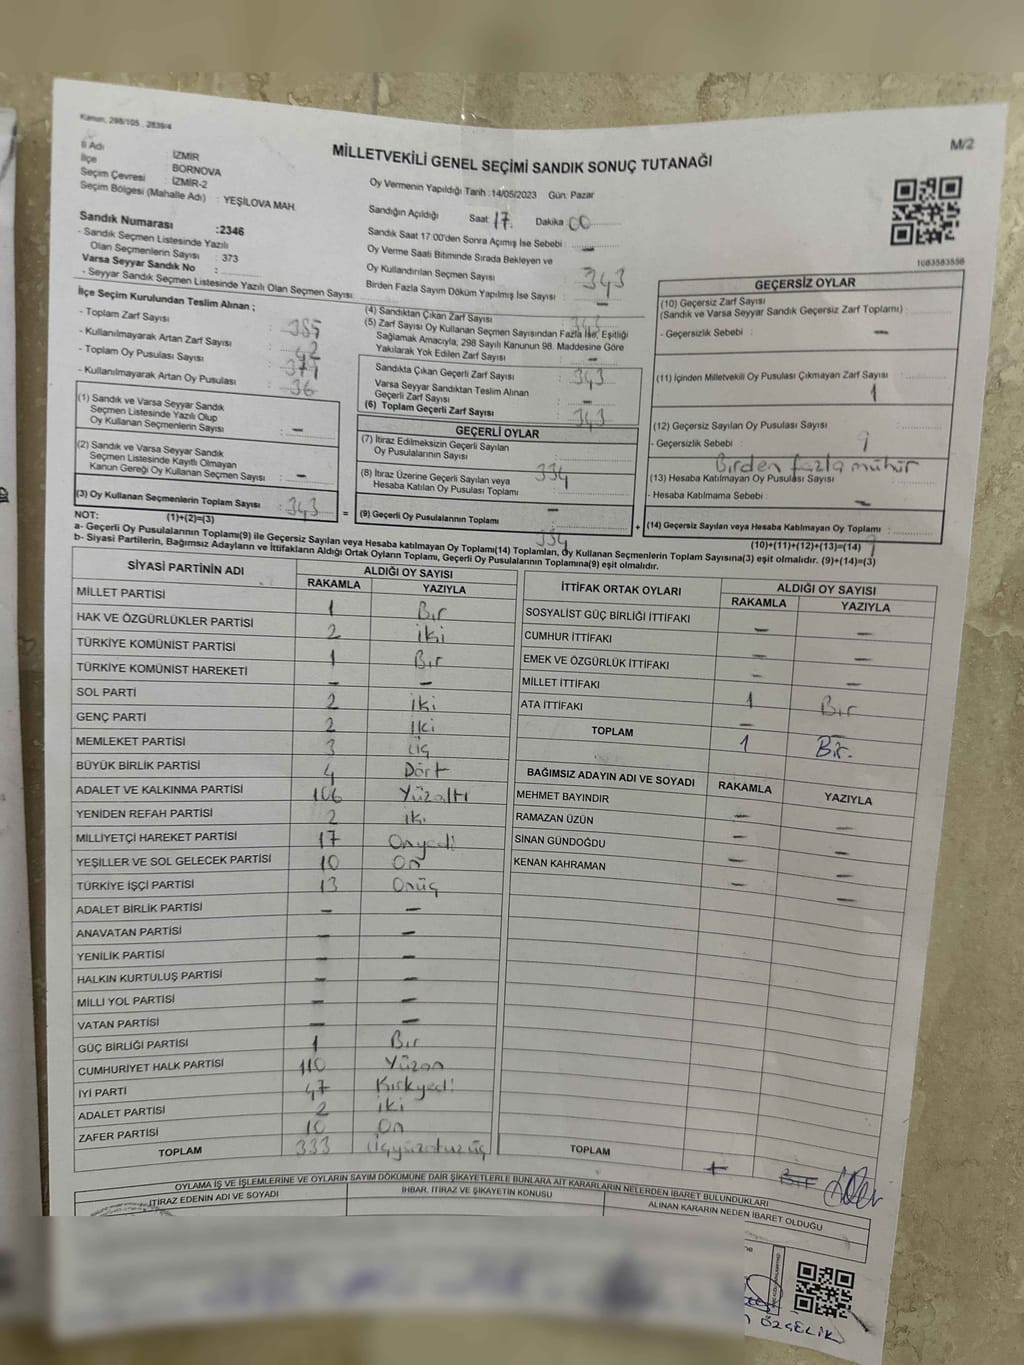 Kanun, 298/105 . 2839/4
M/2
MİLLETVEKİLİ GENEL SEÇİMİ SANDIK SONUÇ TUTANAĞI
İl Adı İZMİR
İlçe BORNOVA
Seçim Çevresi İZMİR-2
Seçim Bölgesi (Mahalle Adı) : YEŞİLOVA MAH.
Sandık Numarası :2346
- Sandık Seçmen Listesinde Yazılı
Olan Seçmenlerin Sayısı : 373
Varsa Seyyar Sandık No :
- Seyyar Sandık Seçmen Listesinde Yazılı Olan Seçmen Sayısı:
İlçe Seçim Kurulundan Teslim Alınan ;
- Toplam Zarf Sayısı : 385
- Kullanılmayarak Artan Zarf Sayısı : 42
- Toplam Oy Pusulası Sayısı : 379
- Kullanılmayarak Artan Oy Pusulası : 36
(1) Sandık ve Varsa Seyyar Sandık
Seçmen Listesinde Yazılı Olup
Oy Kullanan Seçmenlerin Sayısı : –
(2) Sandık ve Varsa Seyyar Sandık
Seçmen Listesinde Kayıtlı Olmayan
Kanun Gereği Oy Kullanan Seçmen Sayısı : –
(3) Oy Kullanan Seçmenlerin Toplam Sayısı : 343
Oy Vermenin Yapıldığı Tarih :14/05/2023 Gün: Pazar
Sandığın Açıldığı Saat: 17. Dakika 00
Sandık Saat 17:00'den Sonra Açımış İse Sebebi : –
Oy Verme Saati Bitiminde Sırada Bekleyen ve
Oy Kullandırılan Seçmen Sayısı : 343
Birden Fazla Sayım Döküm Yapılmış İse Sayısı : –
(4) Sandıktan Çıkan Zarf Sayısı : 343
(5) Zarf Sayısı Oy Kullanan Seçmen Sayısından Fazla İse, Eşitliği
Sağlamak Amacıyla, 298 Sayılı Kanunun 98. Maddesine Göre
Yakılarak Yok Edilen Zarf Sayısı : –
Sandıkta Çıkan Geçerli Zarf Sayısı : 343
Varsa Seyyar Sandıktan Teslim Alınan
Geçerli Zarf Sayısı : –
(6) Toplam Geçerli Zarf Sayısı : 343
GEÇERLİ OYLAR
(7) İtiraz Edilmeksizin Geçerli Sayılan
Oy Pusulalarının Sayısı : 334
(8) İtiraz Üzerine Geçerli Sayılan veya
Hesaba Katılan Oy Pusulası Toplamı : –
= (9) Geçerli Oy Pusulalarının Toplamı : 334
1083583556
GEÇERSİZ OYLAR
(10) Geçersiz Zarf Sayısı
(Sandık ve Varsa Seyyar Sandık Geçersiz Zarf Toplamı) :
- Geçersizlik Sebebi : –
(11) İçinden Milletvekili Oy Pusulası Çıkmayan Zarf Sayısı : 1
(12) Geçersiz Sayılan Oy Pusulası Sayısı : 9
- Geçersizlik Sebebi : Birden fazla mühür
(13) Hesaba Katılmayan Oy Pusulası Sayısı
- Hesaba Katılmama Sebebi : –
+ (14) Geçersiz Sayılan veya Hesaba Katılmayan Oy Toplamı : 9
NOT: (1)+(2)=(3)
(10)+(11)+(12)+(13)=(14)
a- Geçerli Oy Pusulalarının Toplamı(9) ile Geçersiz Sayılan veya Hesaba katılmayan Oy Toplamı(14) Toplamları, Oy Kullanan Seçmenlerin Toplam Sayısına(3) eşit olmalıdır. (9)+(14)=(3)
b- Siyasi Partilerin, Bağımsız Adayların ve İttifakların Aldığı Ortak Oyların Toplamı, Geçerli Oy Pusulalarının Toplamına(9) eşit olmalıdır.
SİYASİ PARTİNİN ADI ALDIĞI OY SAYISI
RAKAMLA YAZIYLA
MİLLET PARTİSİ 1 Bir
HAK VE ÖZGÜRLÜKLER PARTİSİ 2 iki
TÜRKİYE KOMÜNİST PARTİSİ 1 Bir
TÜRKİYE KOMÜNİST HAREKETİ – –
SOL PARTİ 2 iki
GENÇ PARTİ 2 iki
MEMLEKET PARTİSİ 3 üç
BÜYÜK BİRLİK PARTİSİ 4 Dört
ADALET VE KALKINMA PARTİSİ 106 Yüzaltı
YENİDEN REFAH PARTİSİ 2 iki
MİLLİYETÇİ HAREKET PARTİSİ 17 Onyedi
YEŞİLLER VE SOL GELECEK PARTİSİ 10 On
TÜRKİYE İŞÇİ PARTİSİ 13 Onüç
ADALET BİRLİK PARTİSİ – –
ANAVATAN PARTİSİ – –
YENİLİK PARTİSİ – –
HALKIN KURTULUŞ PARTİSİ – –
MİLLİ YOL PARTİSİ – –
VATAN PARTİSİ – –
GÜÇ BİRLİĞİ PARTİSİ 1 Bir
CUMHURİYET HALK PARTİSİ 110 Yüzon
İYİ PARTİ 47 Kırkyedi
ADALET PARTİSİ 2 iki
ZAFER PARTİSİ 10 On
TOPLAM 333 üçyüzotuzüç
İTTİFAK ORTAK OYLARI ALDIĞI OY SAYISI
RAKAMLA YAZIYLA
SOSYALİST GÜÇ BİRLİĞİ İTTİFAKI – –
CUMHUR İTTİFAKI – –
EMEK VE ÖZGÜRLÜK İTTİFAKI – –
MİLLET İTTİFAKI 1 Bir
ATA İTTİFAKI – –
TOPLAM 1 Bir.
BAĞIMSIZ ADAYIN ADI VE SOYADI RAKAMLA YAZIYLA
MEHMET BAYINDIR – –
RAMAZAN ÜZÜN – –
SİNAN GÜNDOĞDU – –
KENAN KAHRAMAN – –
TOPLAM 1 Bir
OYLAMA İŞ VE İŞLEMLERİNE VE OYLARIN SAYIM DÖKÜMÜNE DAİR ŞİKAYETLERLE BUNLARA AİT KARARLARIN NELERDEN İBARET BULUNDUKLARI
İTİRAZ EDENİN ADI VE SOYADI İHBAR, İTİRAZ VE ŞİKAYETİN KONUSU ALINAN KARARIN NEDEN İBARET OLDUĞU
ÖZÇELİK